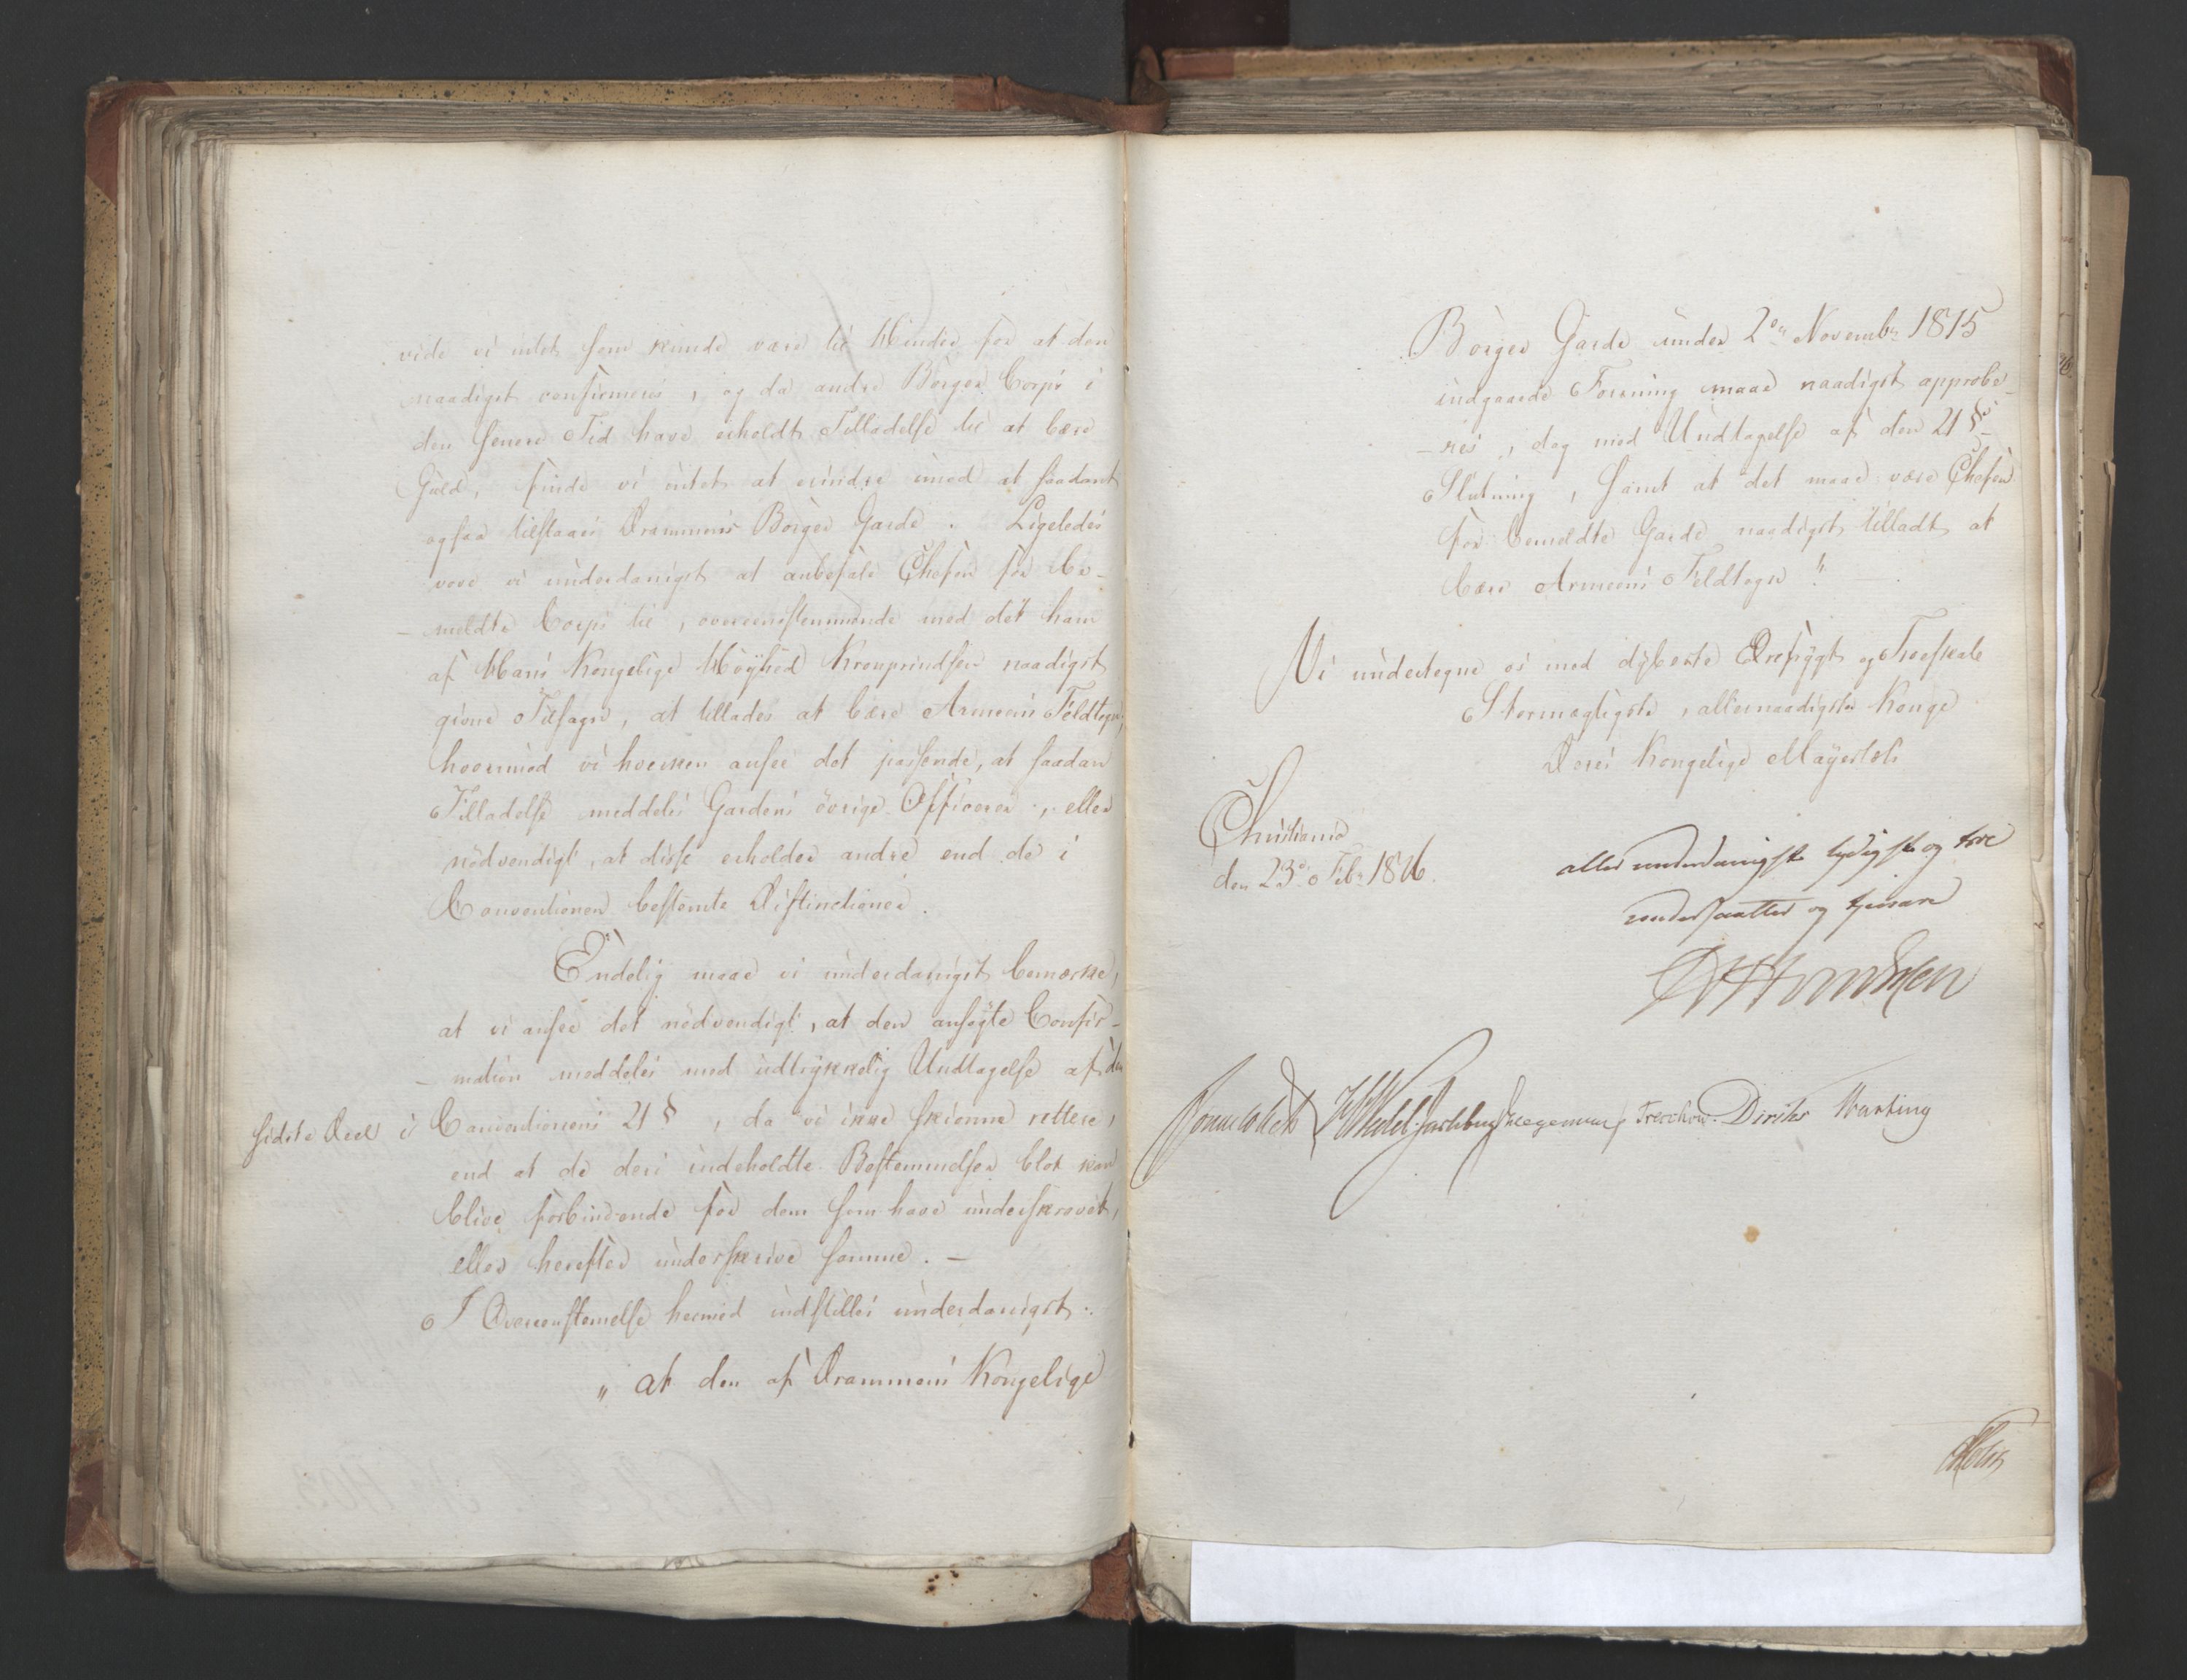 vide vi intet som kunde være til Hinder for at den
naadigst confirmeres, og da andre Borger Corps i
den senere Tid have erholdt Tilladelse til at bære
Guld, finde vi intet at erindre imod at saadant
ogsaa tilstaaes Drammens Borger Garde. Ligeledes
vove vi underdanigst at anbefale Chefen for be-
- meldte Corps til, overeensstemmende med det ham
af Hans Kongelige Høyhed Kronprindsen naadigst
givne Tilsagn, at tillades at bære Armeens Feldtegn,
hvorimod vi hverken ansee det passende, at saadan
Tilladelse meddeles Gardens øvrige Officerer, eller
nødvendigt, at disse erholder andre end de i
Conventionen bestemte Distinctioner.
Endelig maae vi underdanigst bemærke,
at vi ansee det nødvendigt, at den ansøgte Confir-
- mation meddeles med udtrykkelig Undtagelse af den
sidste Deel i Conventionens 21 §, da vi ikke skiønne rettere,
end at de deri indeholdte Bestemmelser blot kan
blive forbindende for dem som have underskrevet,
eller herefter underskrive samme. -
I Overeenstemelse hermed indstilles underdanigst:
" at den af Drammens Kongelige
Borger Garde under 2den Novembr 1815
indgaaede Forening maae naadigst approbe-
- res, dog med Undtagelse af den 21 §s
Slutning, samt at det maae være Chefen
for bemeldte Garde naadigst tilladt at
bære Armeens Feldtegn "
Vi undertegne os med dybeste Ærefrygt og Troeskab
Stormægtigste, allernaadigste Konge
Deres Kongelige Mayestæts
Christiania
den 23de Febr 1816.
allerunderdanigste lydigste og troe
undersaatter og tjenere
Sommerhielm HWedel Jarlsberg Hegermann Treschow. Diriks Hartvig